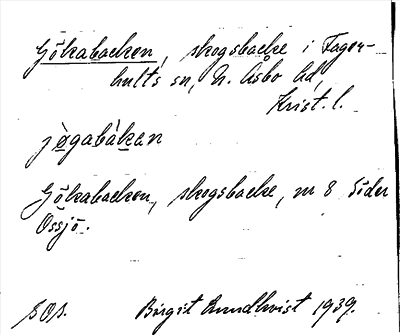 Gökabacken, skogsbacke i Fager-
hults sn, N. Åsbo hd,
Krist. l.
jøgabàkan
Gökabacken, skogsbacke, nr 8 Söder
Össjö.
Birgit Lundkvist 1939.